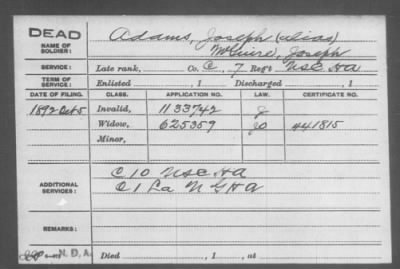 DEAD
NAME OF SOLDIER: Adams, Joseph (alias)
McGuire, Joseph
SERVICE: Late rank, Co. C, 7 Regt USC HA
TERM OF SERVICE: Enlisted , 1 Discharged , 1
DATE OF FILING. CLASS. APPLICATION NO. LAW. CERTIFICATE NO.
1892 Oct 5 Invalid, 1133742 J
Widow, 625359 JO 441815
Minor,
ADDITIONAL SERVICES: C 10 USC HA
C 1 La N G HA
REMARKS:
N.D.A. Died , 1 , at